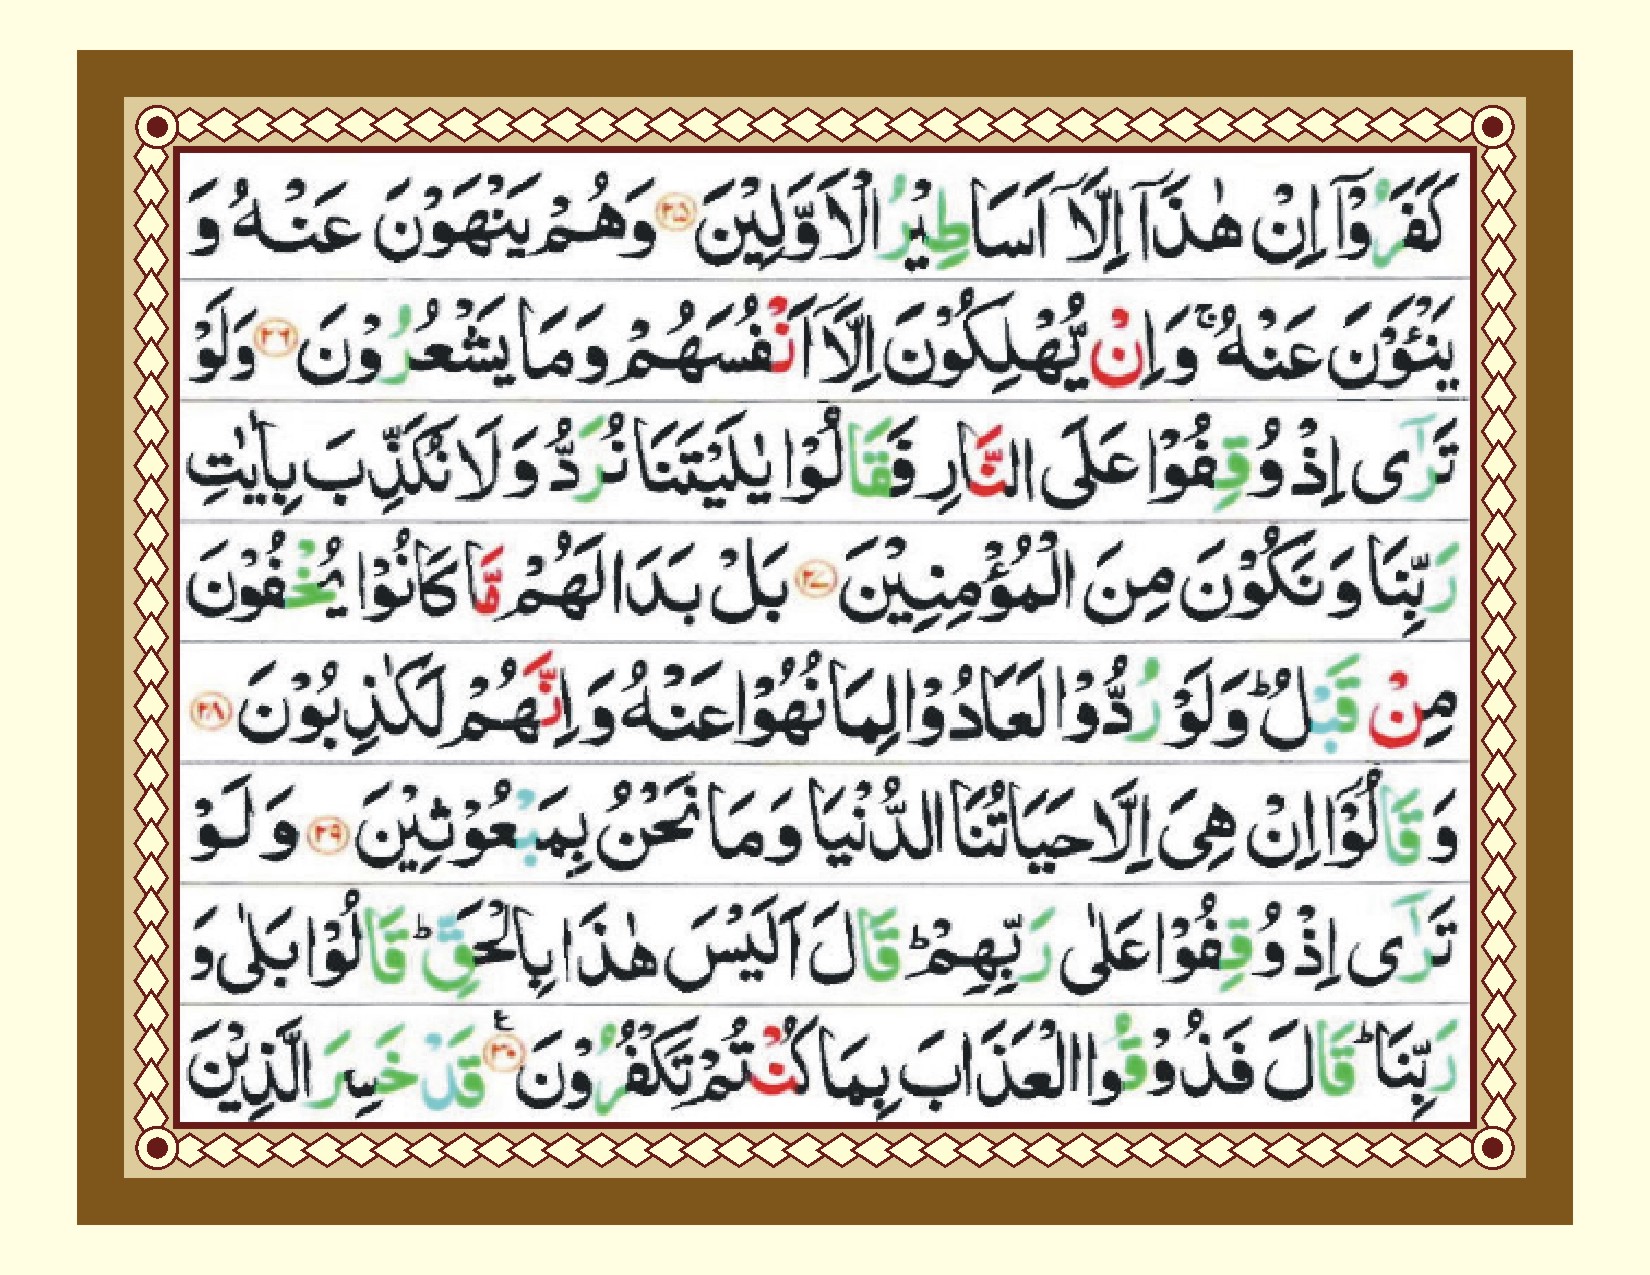 كَفَرُوْۤا اِنْ هٰذَاۤ اِلَّاۤ اَسَاطِيْرُ الْاَوَّلِيْنَ ﴿۲۵﴾ وَهُمْ يَنْهَوْنَ عَنْهُ وَ
يَنْـَٔوْنَ عَنْهُ ۚ وَاِنْ يُّهْلِكُوْنَ اِلَّاۤ اَنْفُسَهُمْ وَمَا يَشْعُرُوْنَ ﴿۲۶﴾ وَلَوْ
تَرٰۤى اِذْ وُقِفُوْا عَلَى النَّارِ فَقَالُوْا يٰلَيْتَنَا نُرَدُّ وَلَا نُكَذِّبَ بِاٰيٰتِ
رَبِّنَا وَنَكُوْنَ مِنَ الْمُؤْمِنِيْنَ ﴿۲۷﴾ بَلْ بَدَا لَهُمْ مَّا كَانُوْا يُخْفُوْنَ
مِنْ قَبْلُ ؕ وَلَوْ رُدُّوْا لَعَادُوْا لِمَا نُهُوْا عَنْهُ وَاِنَّهُمْ لَكٰذِبُوْنَ ﴿۲۸﴾
وَقَالُوْۤا اِنْ هِىَ اِلَّا حَيَاتُنَا الدُّنْيَا وَمَا نَحْنُ بِمَبْعُوْثِيْنَ ﴿۲۹﴾ وَلَوْ
تَرٰۤى اِذْ وُقِفُوْا عَلٰى رَبِّهِمْ ؕ قَالَ اَلَيْسَ هٰذَا بِالْحَقِّ ؕ قَالُوْا بَلٰى وَ
رَبِّنَا ؕ قَالَ فَذُوْقُوا الْعَذَابَ بِمَا كُنْتُمْ تَكْفُرُوْنَ ﴿۳۰﴾ ع قَدْ خَسِرَ الَّذِيْنَ